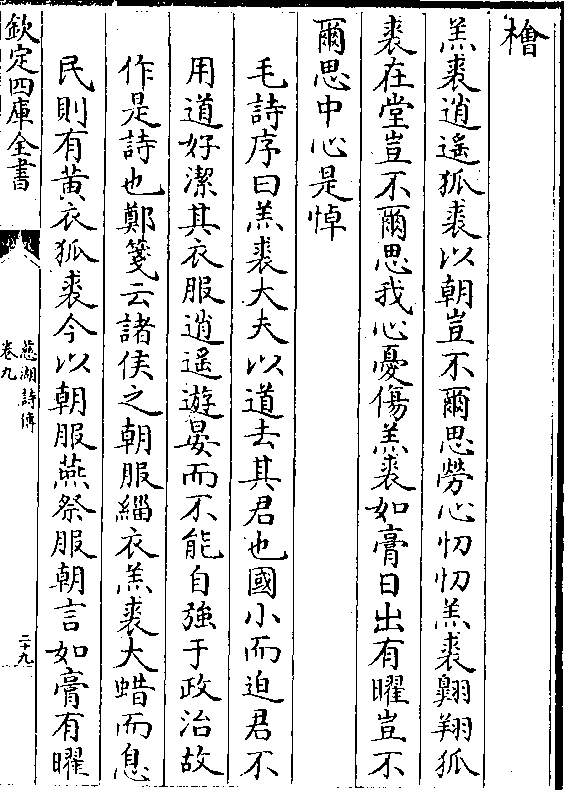 檜
羔裘逍遙狐裘以朝豈不爾思勞心忉忉羔裘翺翔狐
裘在堂豈不爾思我心憂傷羔裘如膏日出有曜豈不
爾思中心是悼
毛詩序曰羔裘大夫以道去其君也國小而迫君不
用道好潔其衣服逍遙遊宴而不能自強于政治故
作是詩也鄭箋云諸侯之朝服緇衣羔裘大蜡而息
民則有黃衣狐裘今以朝服燕祭服朝言如膏有曜
欽定四庫全書
慈湖詩傳
卷九
二十九